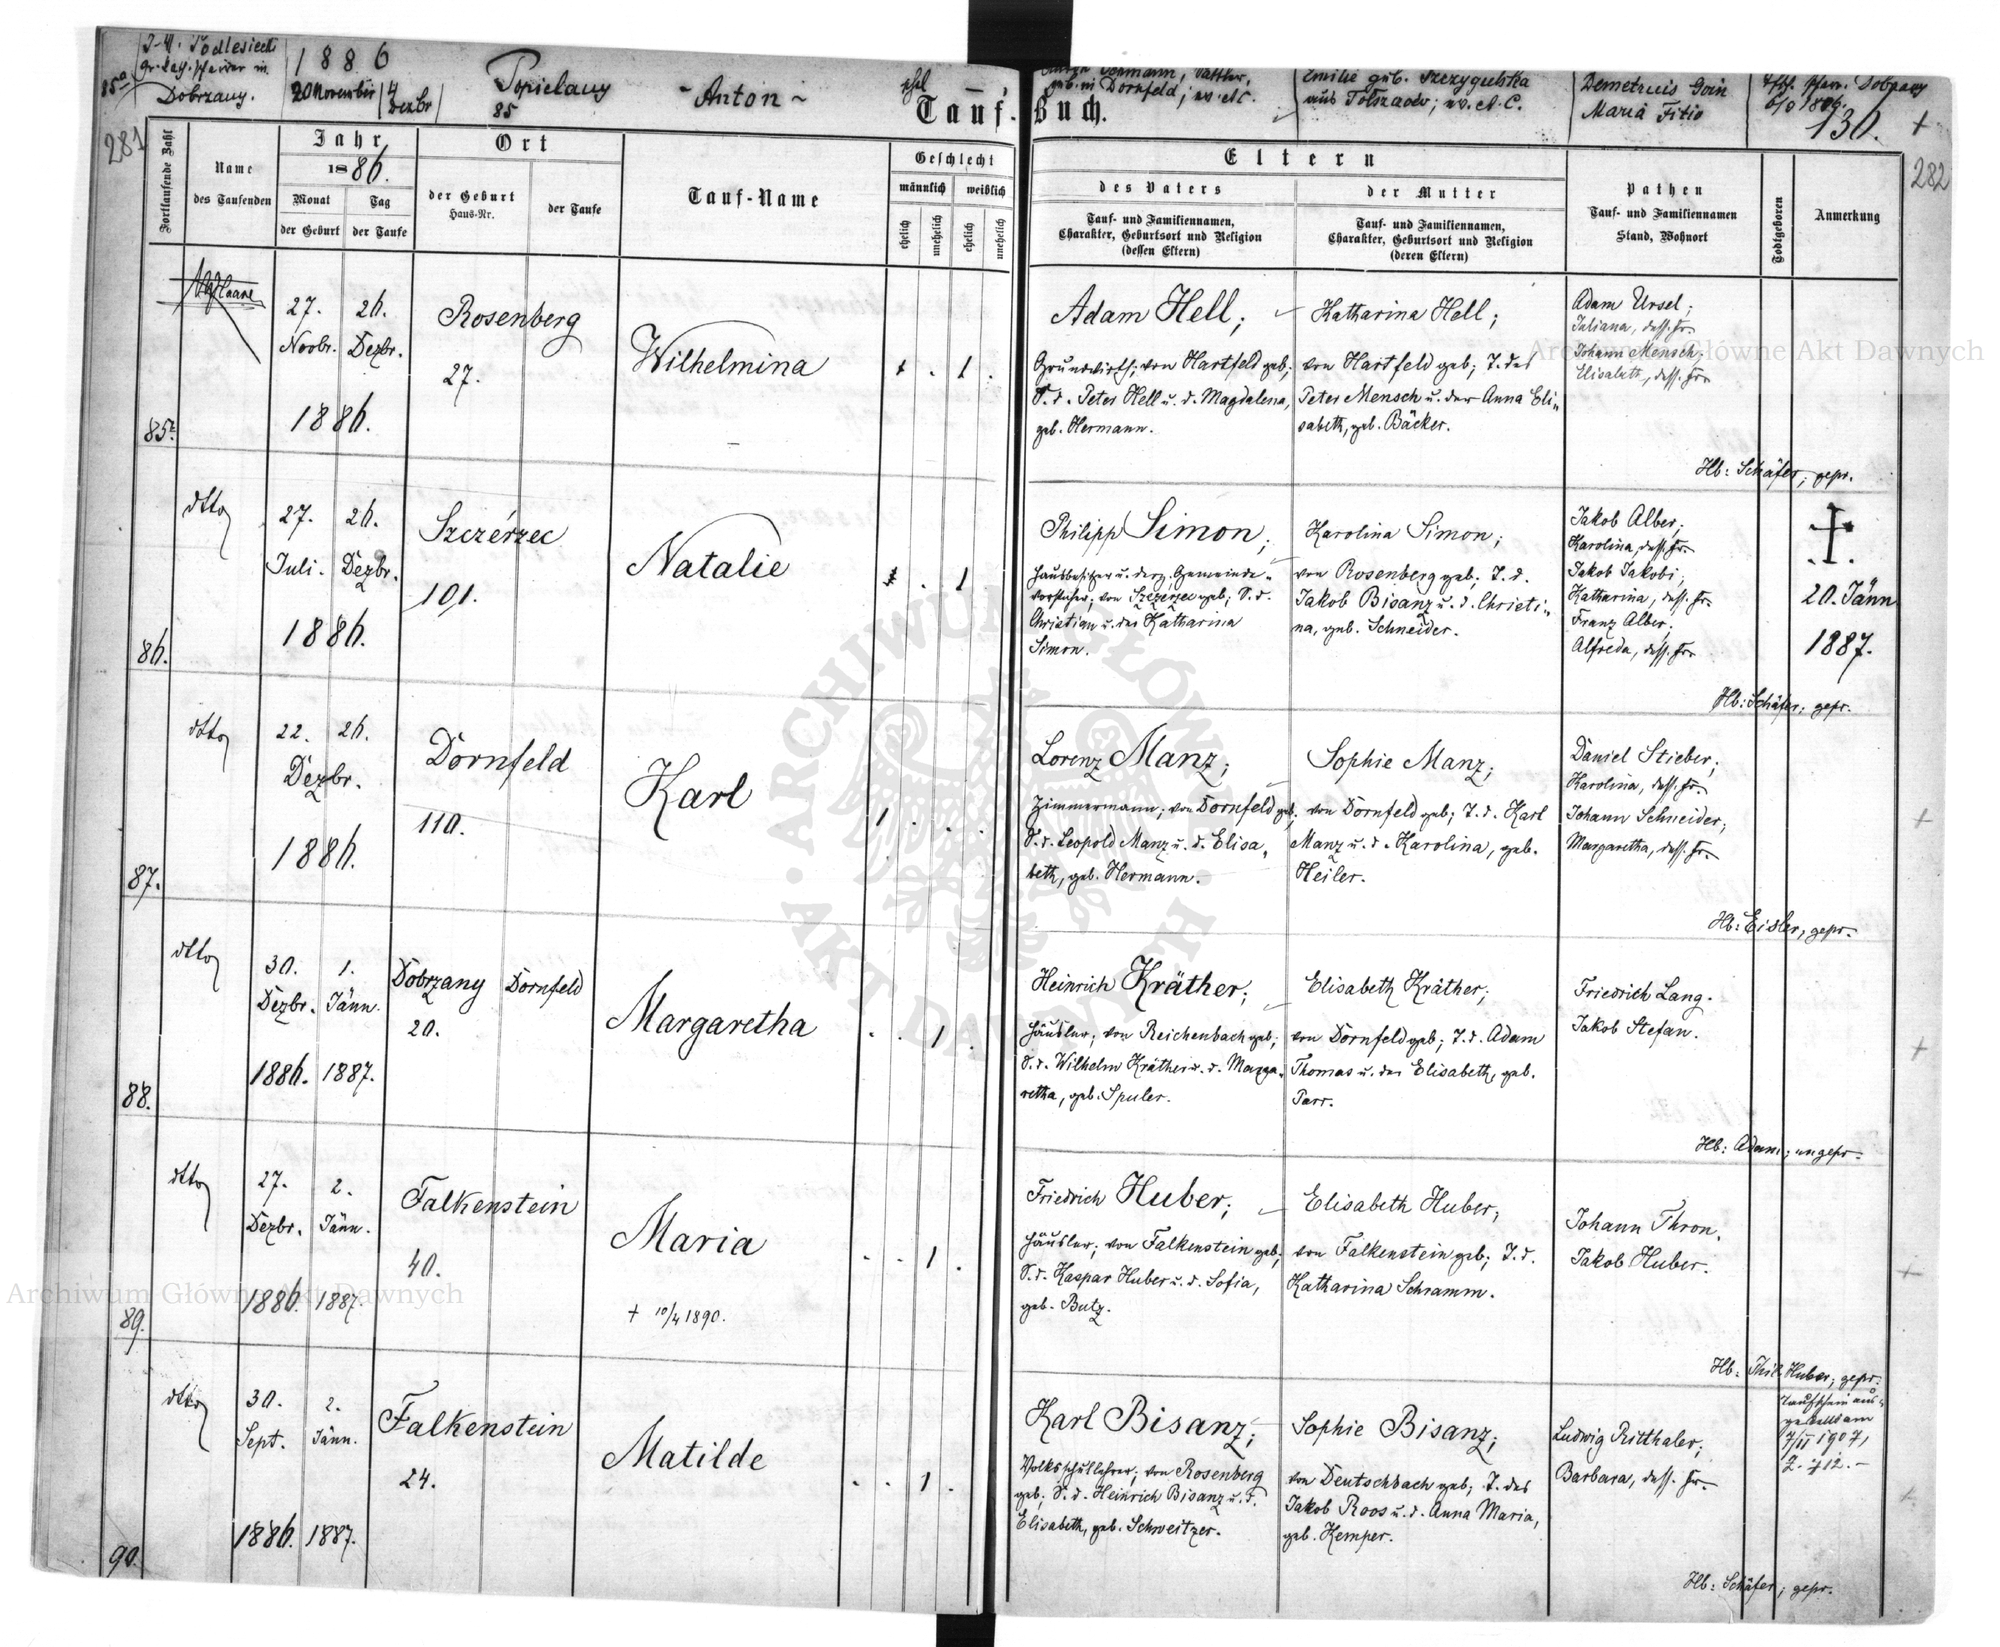 J. M. Podlesiecki
gr. kath. Pfarrer in
Dobrzany.
85a
1886
20 November 4 Dezbr
Popielany
85
- Anton -
ehel.
Tauf-Buch.
geb. in Dornfeld; ev. A.C.
Emilie geb. Szczygielska
aus Tołszczów; ev. A.C.
Demetrius Goin
Maria Fitio
Dobrzany
130.
281
282
Fortlaufende Zahl
Name
des Taufenden
Jahr
1886.
Monat
der Geburt
Tag
der Taufe
Ort
der Geburt
Haus-Nr.
der Taufe
Tauf-Name
Geschlecht
männlich
weiblich
ehelich
unehelich
ehelich
unehelich
Eltern
des Vaters
Tauf- und Familiennamen,
Charakter, Geburtsort und Religion
(dessen Eltern)
der Mutter
Tauf- und Familiennamen,
Charakter, Geburtsort und Religion
(deren Eltern)
Pathen
Tauf- und Familiennamen
Stand, Wohnort
Todtgeboren
Anmerkung
85b.
27. 26.
Novbr. Dezbr.
1886.
Rosenberg
27.
Wilhelmina
1
Adam Hell;
Grundwirth; von Hartfeld geb;
S. d. Peter Hell u. d. Magdalena,
geb. Hermann.
Katharina Hell;
von Hartfeld geb; T. des
Peter Mensch u. der Anna Eli-
sabeth, geb. Bäcker.
Adam Ursel;
Juliana, dess. Fr.
Johann Mensch;
Elisabeth, dess. Fr.
Hb: Schäfer; gepr.
86.
dtto
27. 26.
Juli. Dezbr.
1886.
Szczérzec
101.
Natalie
1
Philipp Simon;
Hausbesitzer u. derz. Gemeinde-
vorsteher; von Szczerzec geb; S. d.
Christian u. der Katharina
Simon.
Karolina Simon;
von Rosenberg geb; T. d.
Jakob Bisanz u. d. Christi-
na, geb. Schneider.
Jakob Alber;
Karolina, dess. Fr.
Jakob Jakobi;
Katharina, dess. Fr.
Franz Alber;
Alfreda, dess. Fr.
20. Jänn
1887.
Hb: Schäfer; gepr.
87.
dtto
22. 26.
Dezbr.
1886.
Dornfeld
110.
Karl
1
Lorenz Manz;
Zimmermann; von Dornfeld geb;
S. d. Leopold Manz u. d. Elisa-
beth, geb. Hermann.
Sophie Manz;
von Dornfeld geb; T. d. Karl
Manz u. d. Karolina, geb.
Heiler.
Daniel Stieber;
Karolina, dess. Fr.
Johann Schneider;
Margaretha, dess. Fr.
Hb: Eisler, gepr.
88.
dtto
30. 1.
Dezbr. Jänn.
1886. 1887.
Dobrzany
20.
Dornfeld
Margaretha
1
Heinrich Kräther;
Häusler; von Reichenbach geb;
S. d. Wilhelm Kräther u. d. Marga-
retha, geb. Spuler.
Elisabeth Kräther;
von Dornfeld geb; T. d. Adam
Thomas u. der Elisabeth, geb.
Parr.
Friedrich Lang.
Jakob Stefan.
Hb: Adam; ungepr.
89.
dtto
27. 2.
Dezbr. Jänn.
1886. 1887.
Falkenstein
40.
Maria
† 10/4 1890.
1
Friedrich Huber;
Häusler; von Falkenstein geb;
S. d. Kaspar Huber u. d. Sofia,
geb. Butz.
Elisabeth Huber;
von Falkenstein geb; T. d.
Katharina Schramm.
Johann Thron.
Jakob Huber.
Hb: Phil. Huber; gepr.
90.
dtto
30. 2.
Sept. Jänn.
1886. 1887.
Falkenstein
24.
Matilde
1
Karl Bisanz;
Volksschullehrer; von Rosenberg
geb; S. d. Heinrich Bisanz u. d.
Elisabeth, geb. Schweitzer.
Sophie Bisanz;
von Deutschbach geb; T. des
Jakob Roos u. d. Anna Maria,
geb. Kemper.
Ludwig Ritthaler;
Barbara, dess. Fr.
Taufschein aus-
gestellt am
7/II 1907,
Z. 412.-
Hb: Schäfer; gepr.
Archiwum Główne Akt Dawnych
Archiwum Główne Akt Dawnych
ARCHIWUM GŁÓWNE AKT DAWNYCH